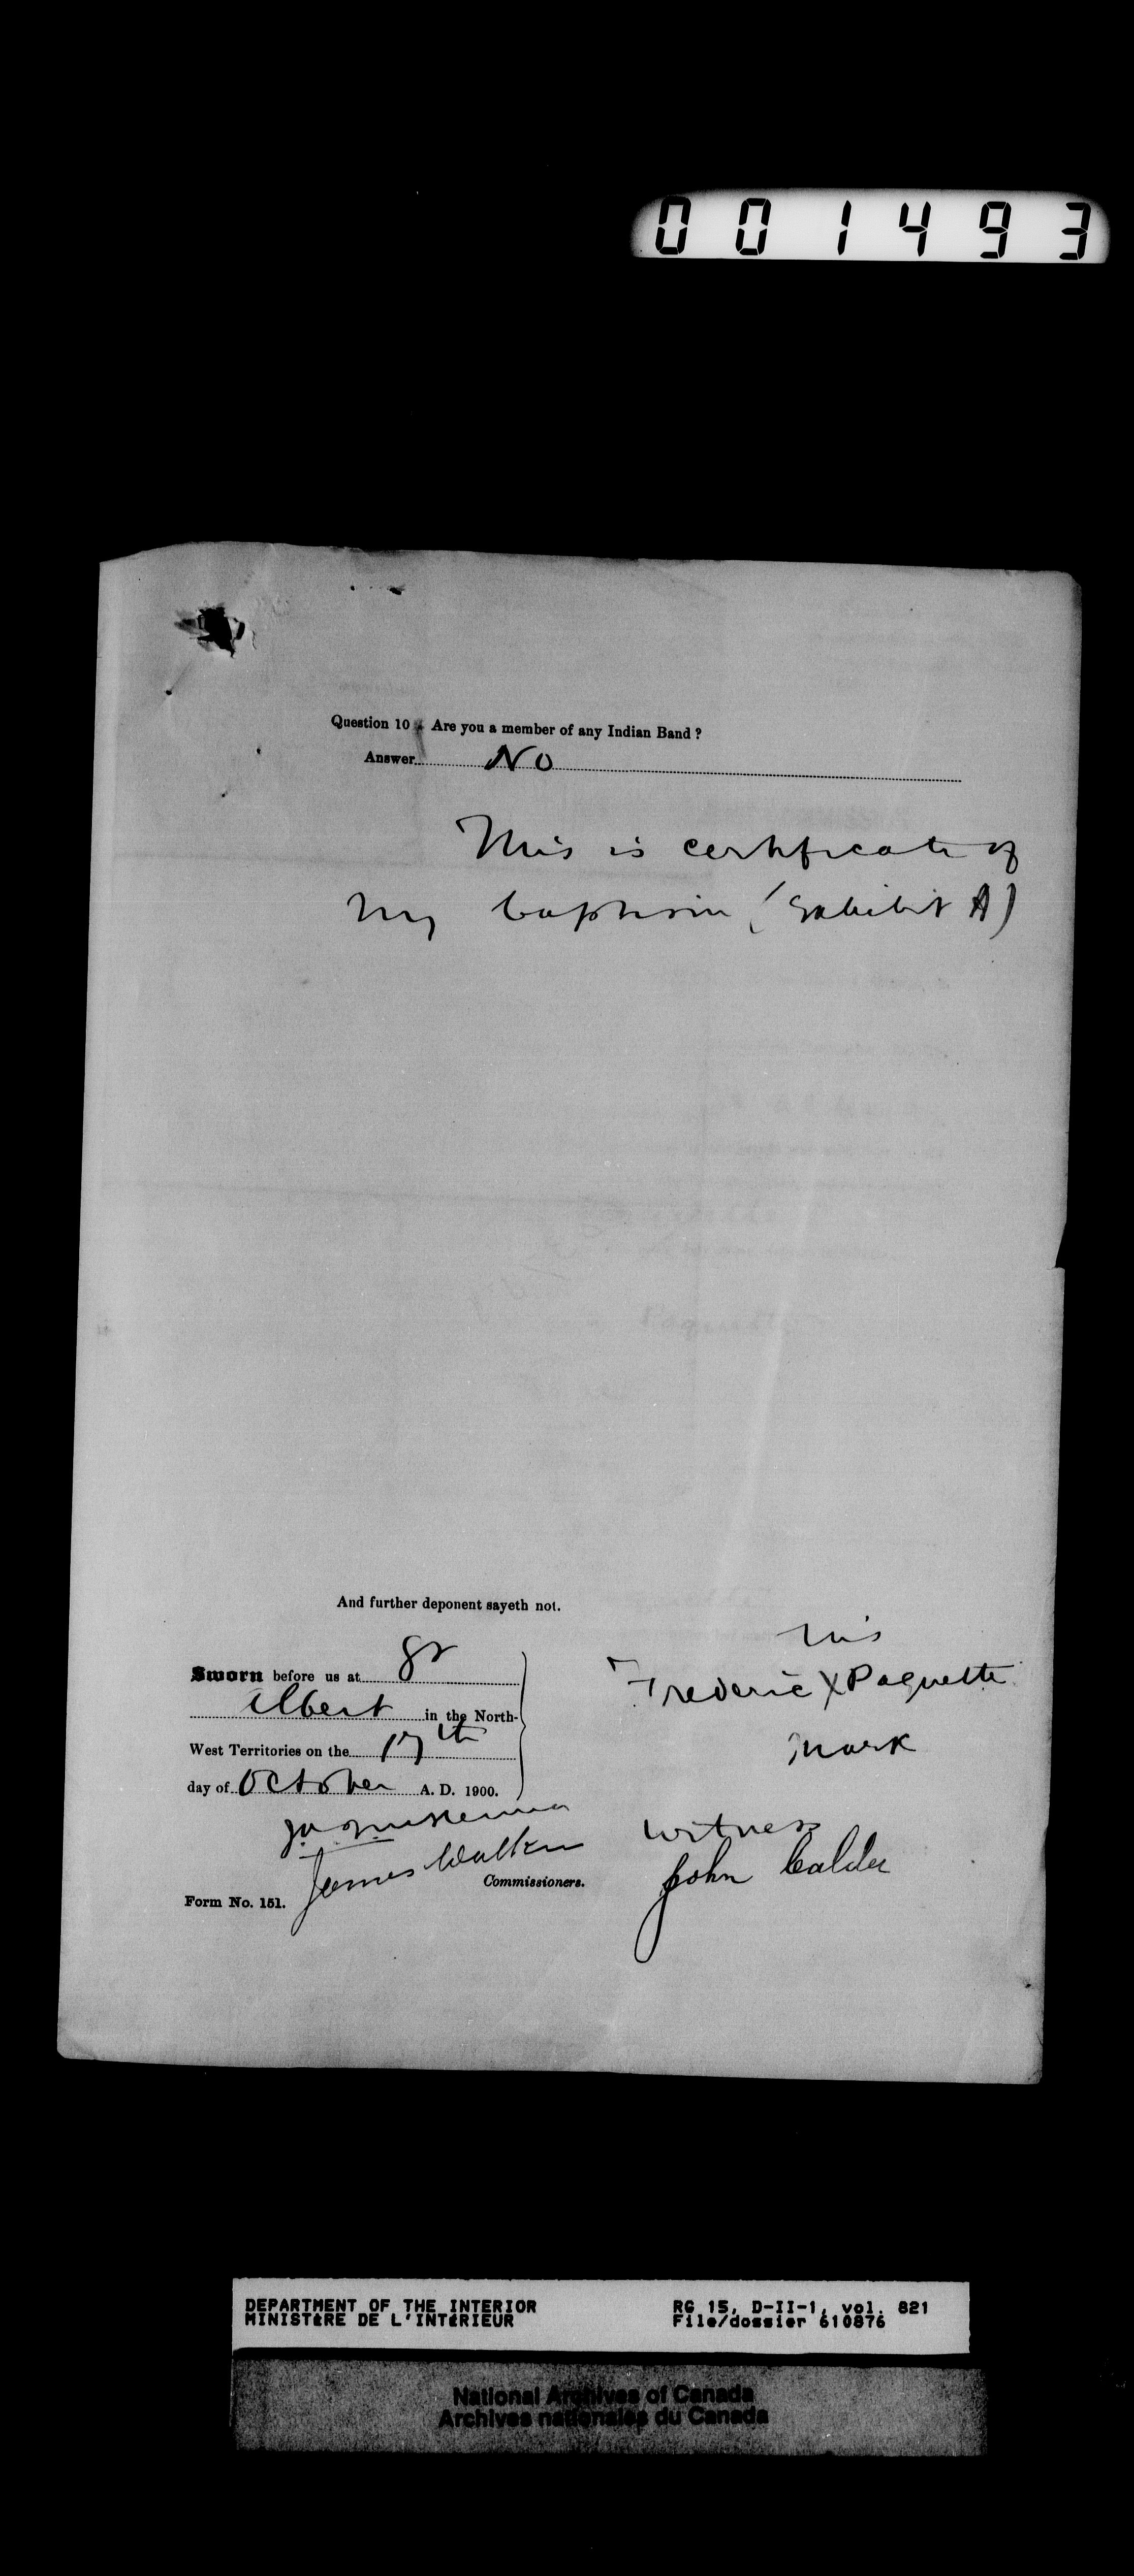 001493
Question 10 Are you a member of any Indian Band ?
Answer No
This is certificate of
my baptism (Exhibit A)
And further deponent sayeth not.
Sworn before us at Pr
Albert in the North-
West Territories on the 17th
day of October A. D. 1900.
his
Frederic X Paquette
mark
witness
John Calder
James Walker
Commissioners.
Form No. 151.
DEPARTMENT OF THE INTERIOR
MINISTÈRE DE L'INTÉRIEUR
RG 15, D-II-1, vol. 821
File/dossier 610876
National Archives of Canada
Archives nationales du Canada